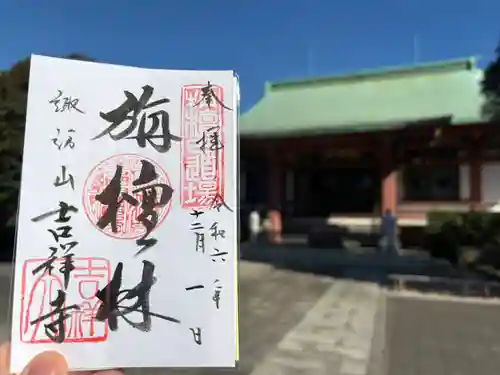 奉拝
令和六年
十二月一日
旃檀林
諏訪山
吉祥寺